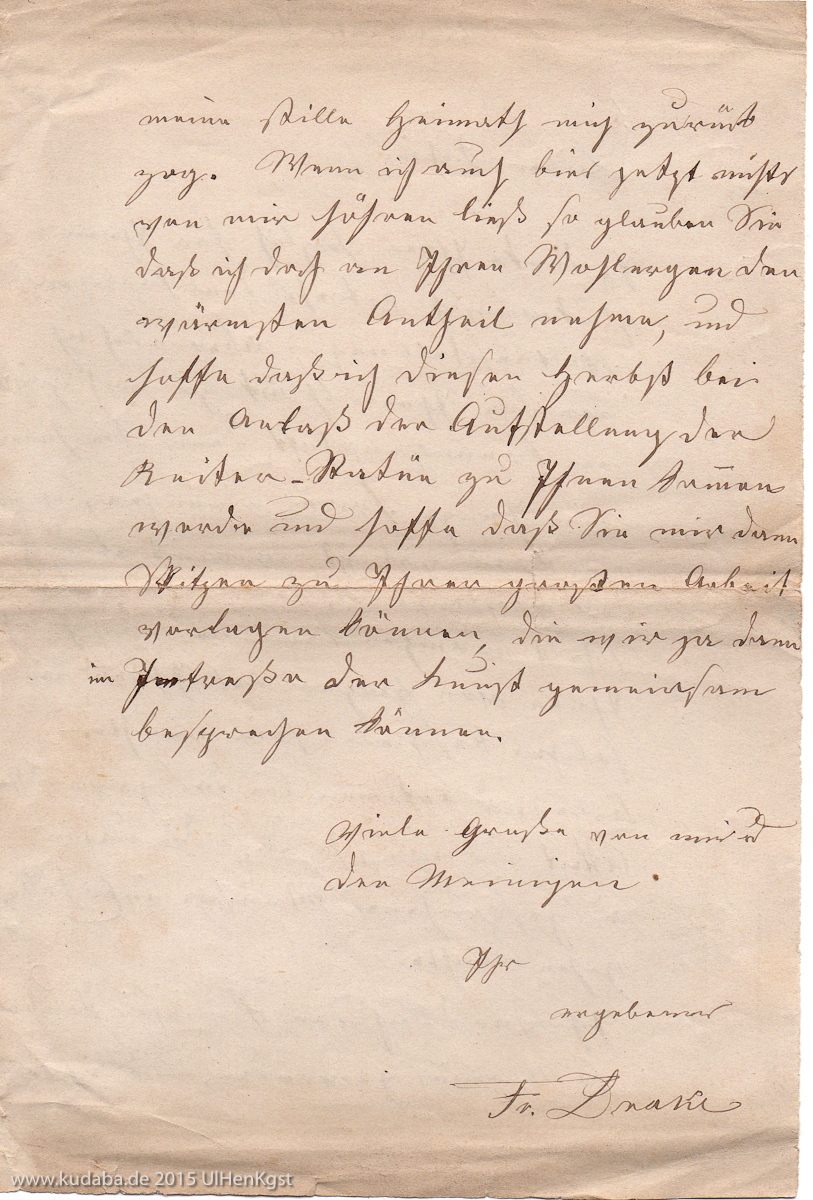 meine stille Heimath mich zurück
zog. Wenn ich auch bies jetzt nichts
von mir höhren ließ so glauben Sie
daß ich doch an Ihren Wohlergen den
wärmsten Antheil nehme, und
hoffe daß ich diesen Herbst bei
den Anlaß der Aufstellung der
Reiter-Statüe zu Ihnen kom̅en
werde und hoffe daß Sie mir dann
Skitzen zu Ihrer großen Arbeit
vorlegen können, die wir ja dann
im Intreße der Kunst gemeinsam
besprechen können.
Viele Gruße von mir u
den Meinigen.
Ihr
ergebener
Fr. Drake
www.kudaba.de 2015 UlHenKgst